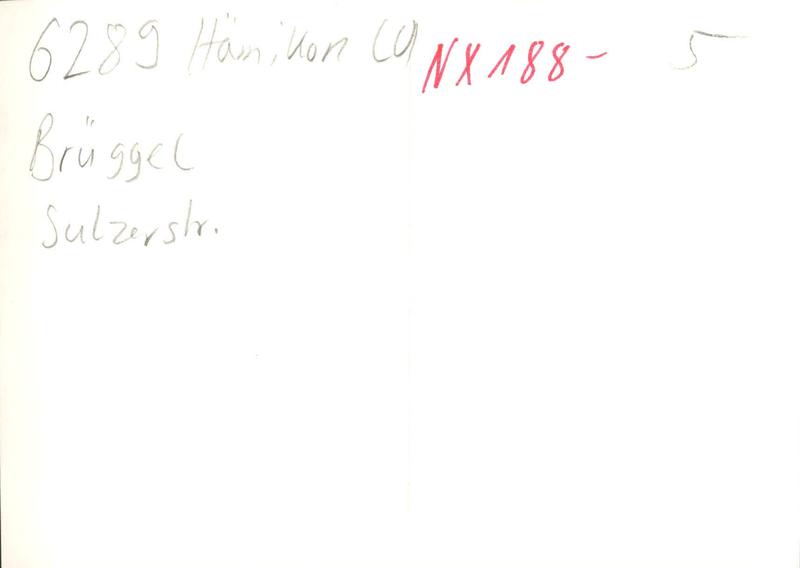 6289 Hämikon LU NX 188- 5
Brüggel
Sulzerstr.